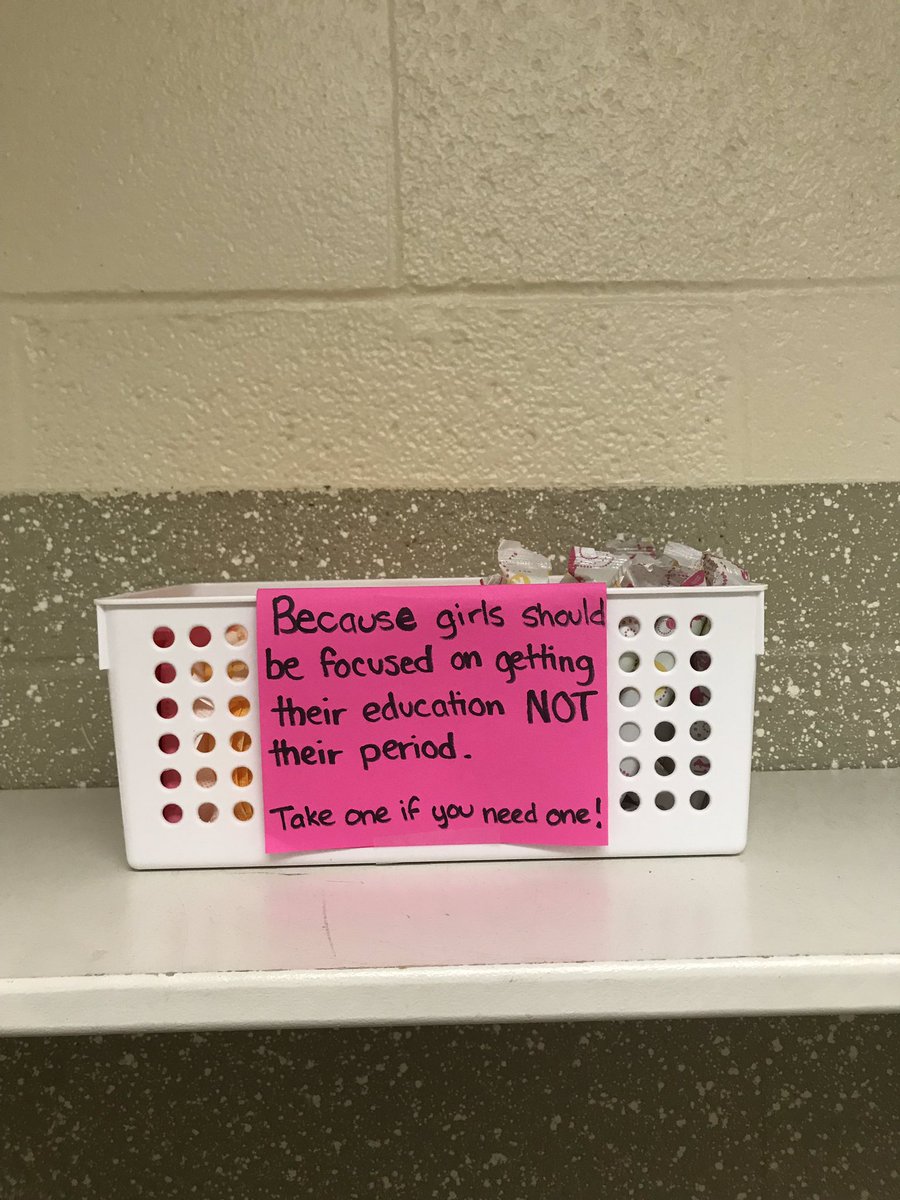 Because girls should
be focused on getting
their education NOT
their period.
Take one if you need one!